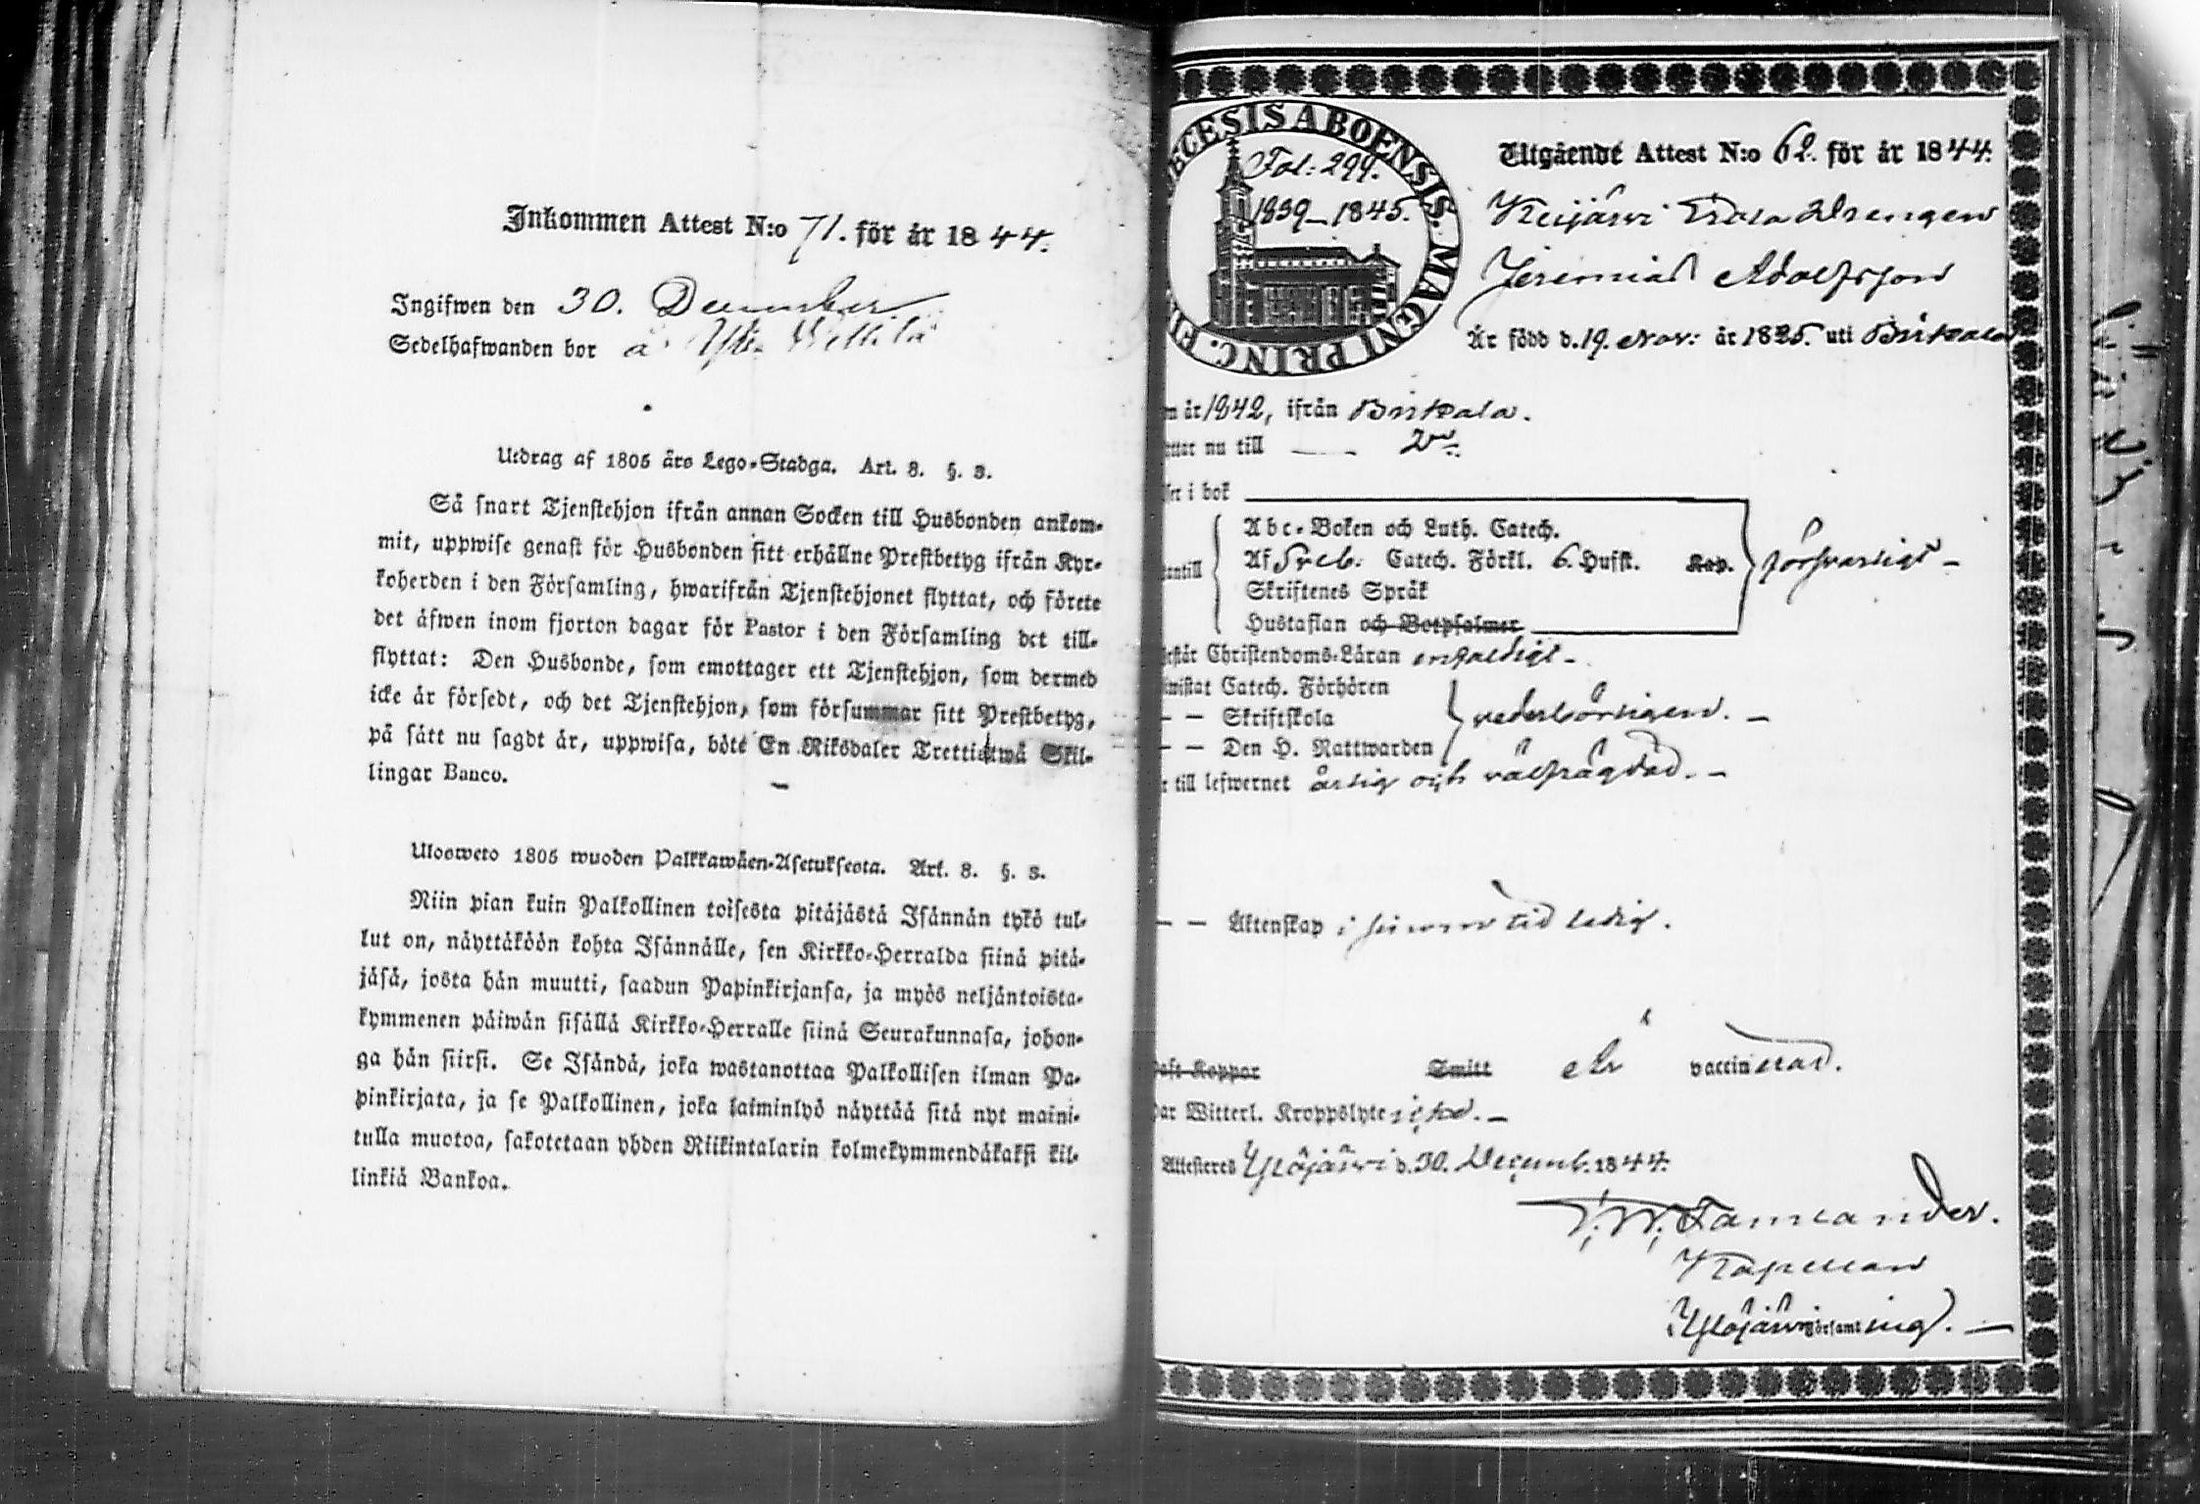 Inkommen Attest N:o 71. för år 1844.
Ingifwen den 30. December
Sedelhafwanden bor å Yli
Utdrag af 1805 års Lego-Stadga. Art. 8. §. 3.
Så snart Tjenstehjon ifrån annan Socken till Husbonden ankom-
mit, uppwise genast för Husbonden sitt erhållne Prestbetyg ifrån Kyr-
koherden i den Församling, hwarifrån Tjenstehjonet flyttat, och förete
det äfwen inom fjorton dagar för Pastor i den Församling det till-
flyttat: Den Husbonde, som emottager ett Tjenstehjon, som dermed
icke är försedt, och det Tjenstehjon, som försummar sitt Prestbetyg,
på sätt nu sagdt är, uppwisa, böte En Riksdaler Trettiotwå Skil-
lingar Banco.
Ulosweto 1805 wuoden Palkkawäen-Asetuksesta. Art. 8. §. 3.
Niin pian kuin Palkollinen toisesta pitäjästä Isännän tykö tul-
lut on, näyttäköön kohta Isännälle, sen Kirkko-Herralda siinä pitä-
jäsä, josta hän muutti, saadun Papinkirjansa, ja myös neljäntoista-
kymmenen päiwän sisällä Kirkko-Herralle siinä Seurakunnasa, johon-
ga hän siirsi. Se Isändä, joka wastanottaa Palkollisen ilman Pa-
pinkirjata, ja se Palkollinen, joka laiminlyö näyttää sitä nyt maini-
tulla muotoa, sakotetaan yhden Riikintalarin kolmekymmendäkaksi kil-
linkiä Bankoa.
ECESIS ABOENSIS. MAGNI PRINC. FI
Fol: 299.
1839–1845.
Utgående Attest N:o 62. för år 1844.
Keijärwi Drengen
Jeremias Adolfsson
Är född d. 19. Nov: år 1825. uti Birkala
m år 1842, ifrån Birkala.
ttar nu till
ser i bok
Abc-Boken och Luth. Catech.
antill Af Sveb. Catech. Förkl. 6. Hufst. Kap. försvarligt –
Skriftenes Språk
Hustaflan och Botpsalmer
rstår Christendoms-Läran enfaldigt –
wistat Catech. Förhören
– – Skriftskola vederbörligen. –
– – Den H. Nattwarden
r till lefwernet ärlig och välfrägdad. –
– – Äktenskap i sinom tid ledig.
aft Koppor Smitt Är vaccinerad.
ar Witterl. Kroppslyte icke. –
Attesteras Ylöjärwi d. 30. Decemb. 1844.
Tamlander.
Kapellan
Ylöjärwi församling. –